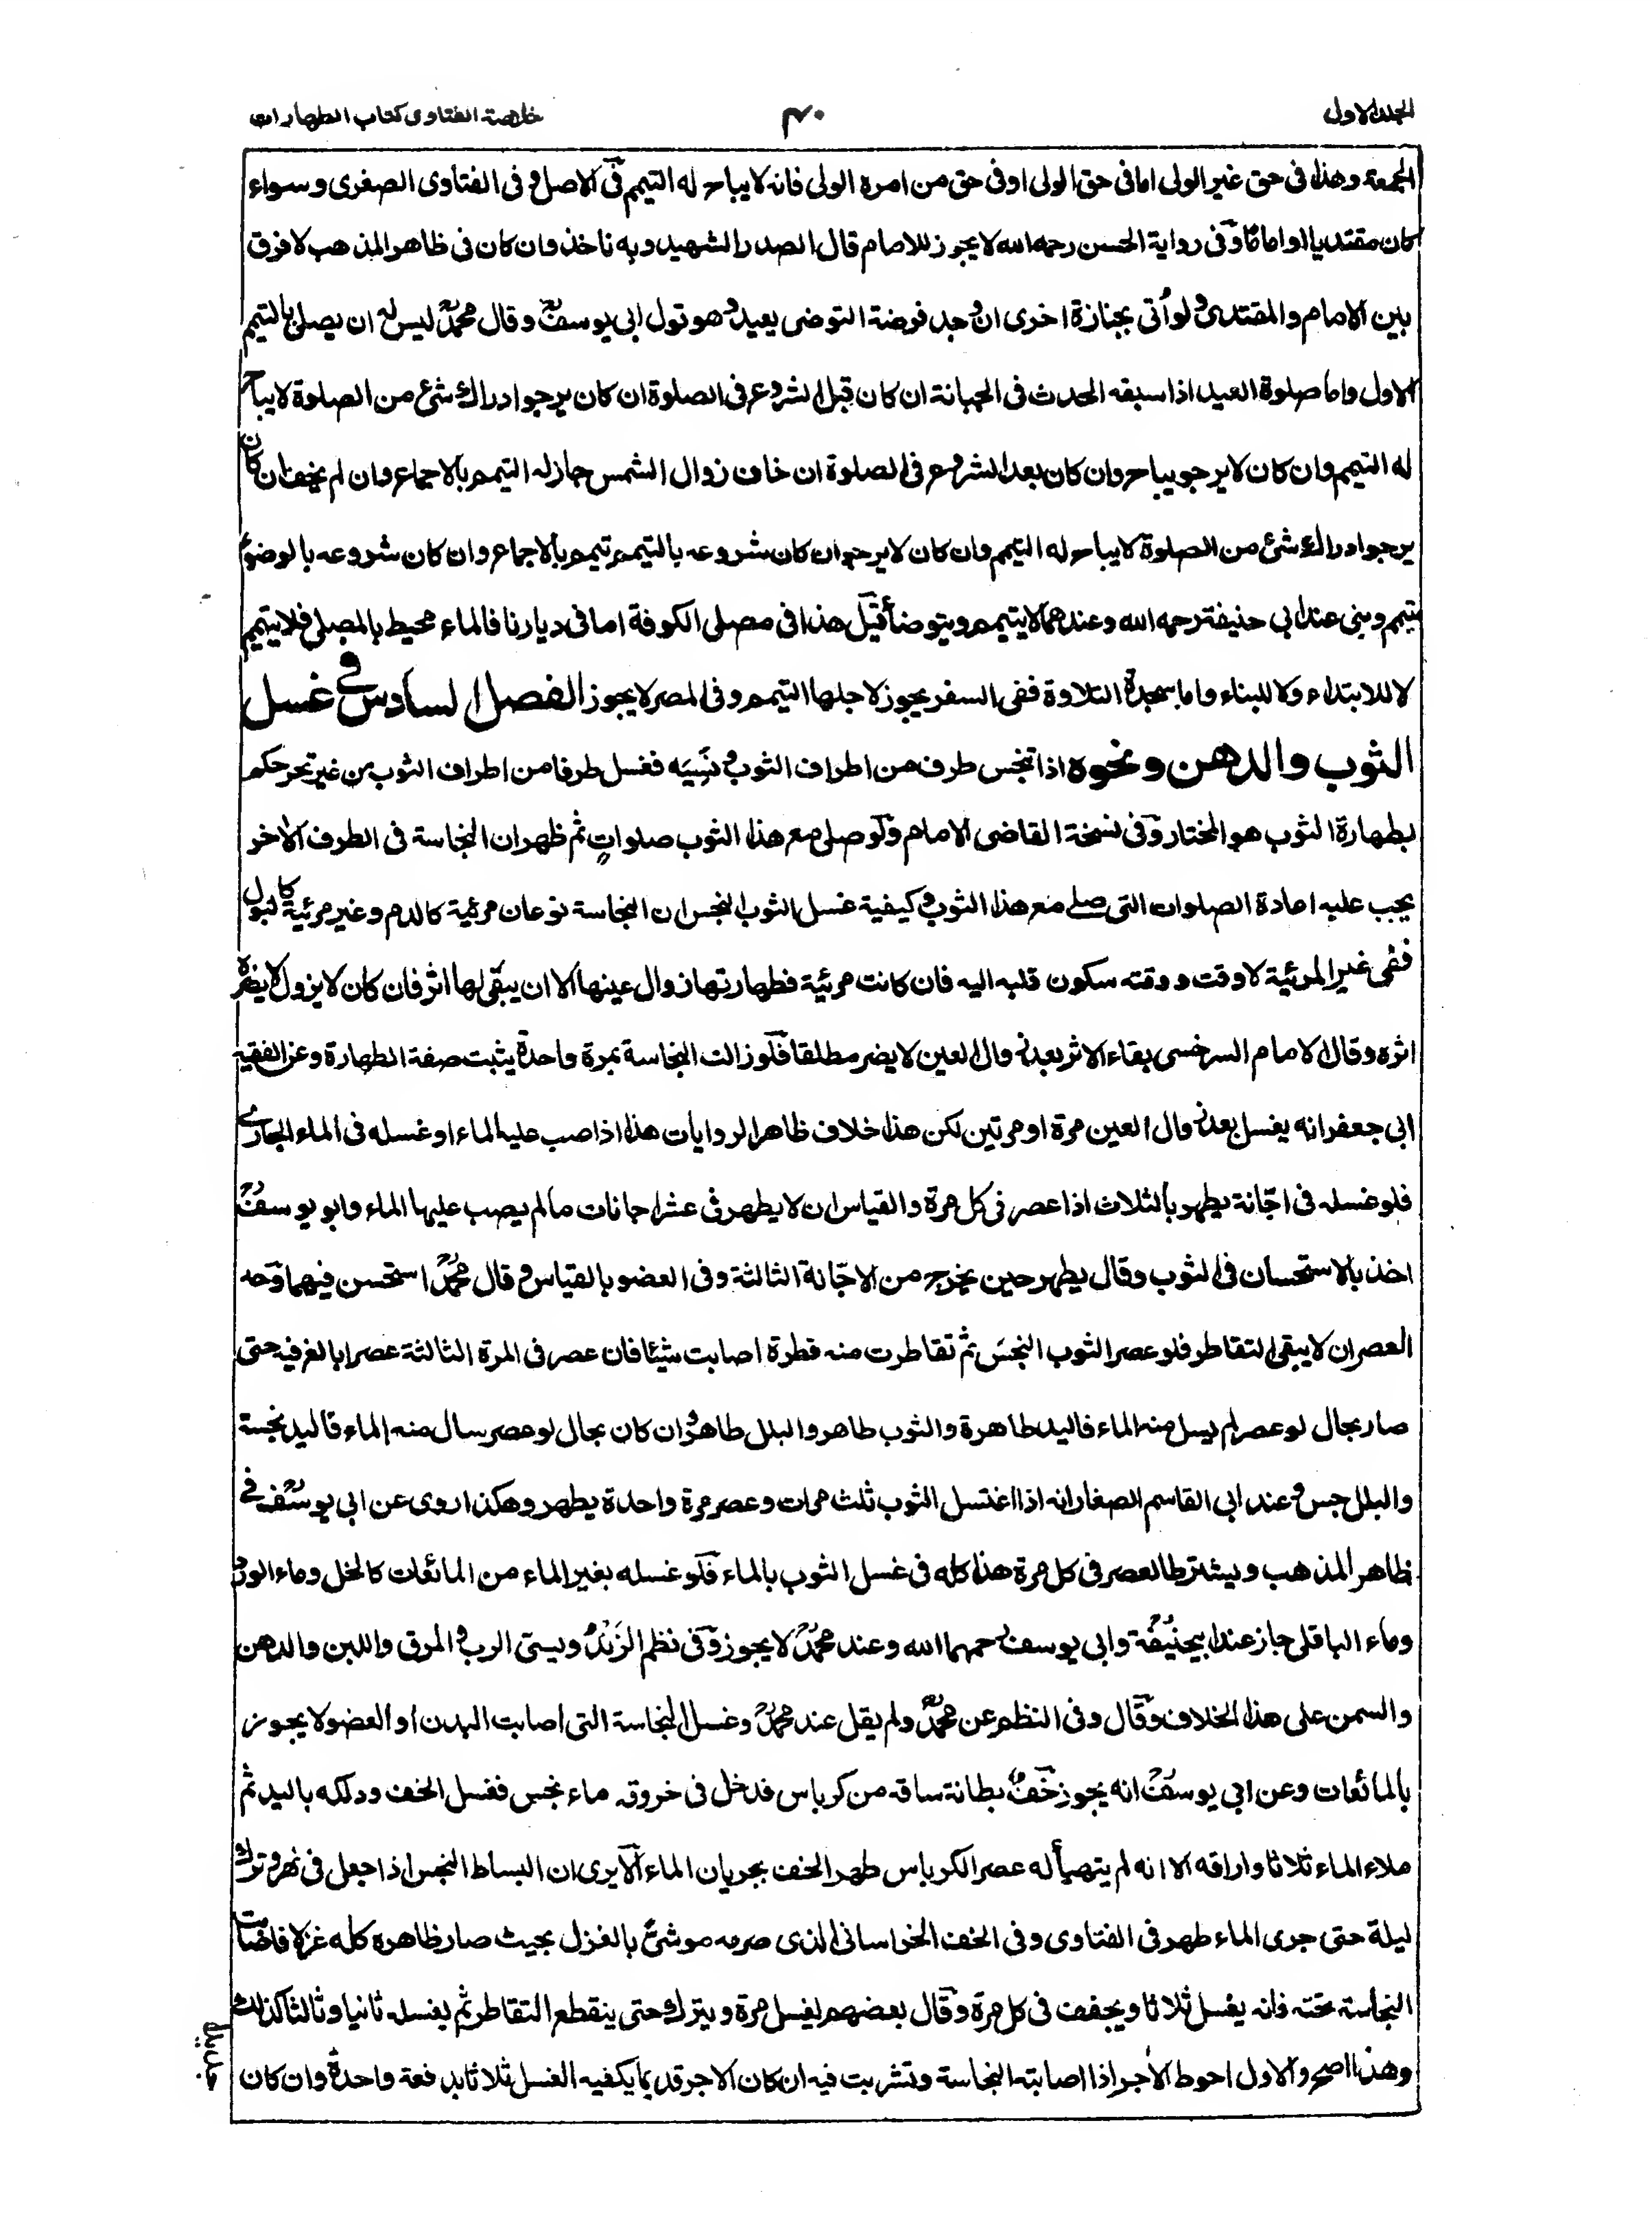 المجلد الاول
٤٠
خلاصة الفتاوى كتاب الطهارات
الجمعة وهذا فى حق غير الولى اما فى حق الولى اوفى حق من امره الولى فانه لا يباح له التيمم فى الاصل و فى الفتاوى الصغرى وسواء
كان مقتديا او اماما وفى رواية الحسن رحمه الله لا يجوز للامام قال الصدر الشهيد وبه ناخذ وان كان فى ظاهر المذهب لا فرق
بين الامام والمقتدى ولو أتى بجنازة اخرى ان وجد فرضة التوضى يعيد وهو قول ابى يوسف وقال محمد ليس له ان يصلى بالتيمم
الاول واما صلوة العيد اذا سبقه الحدث فى الجبانة ان كان قبل الشروع فى الصلوة ان كان يرجوا دراك شئ من الصلوة لا يباح
له التيمم وان كان لا يرجو يباح وان كان بعد الشروع فى الصلوة ان خاف زوال الشمس جاز له التيمم بالاجماع وان لم يخف ان كان
يرجوا دراك شئ من الصلوة لا يباح له التيمم وان كان لا يرجوان كان شروعه بالتيمم تيمم بالاجماع وان كان شروعه بالوضوء
تيمم وبنى عند ابى حنيفة رحمه الله وعندهما لا يتيمم ويتوضأ قيل هذا فى مصلى الكوفة اما فى ديارنا فالماء محيط بالمصلى فلا يتيمم
لا للابتداء ولا للبناء واما سجدة التلاوة ففى السفر يجوز لاجلها التيمم وفى المصر لا يجوز الفصل السادس فى غسل
الثوب والدهن ونحوه اذا تنجس طرف من اطراف الثوب و نَسِيَه فغسل طرفا من اطراف الثوب من غير تحر حكم
بطهارة الثوب هو المختار وفى نسخة القاضى الامام ولو صلى مع هذا الثوب صلواتٍ ثم ظهر ان النجاسة فى الطرف الآخر
يجب عليه اعادة الصلوات التى صلے مع هذا الثوب و كيفية غسل الثوب النجس ان النجاسة نوعان مرئية كالدم وغير مرئية كالبول
ففى غير المرئية لا وقت ووقته سكون قلبه اليه فان كانت مرئية فطهارتها زوال عينها الا ان يبقى لها اثر فان كان لا يزول لا يضره
اثره وقال الامام السرخسى بقاء الاثر بعد زوال العين لا يضر مطلقا فلو زالت النجاسة بمرة واحدة يثبت صفة الطهارة وعن الفقيه
ابى جعفر انه يغسل بعد زوال العين مرة او مرتين لكن هذا خلاف ظاهر الروايات هذا اذا صب عليه الماء او غسله فى الماء الجارى
فلو غسله فى اجّانة يطهر بالثلاث اذا عصر فى كل مرة والقياس ان لا يطهر فى عشر اجانات ما لم يصب عليها الماء وابو يوسف
اخذ بالاستحسان فى الثوب وقال يطهر حين يخرج من الاجّانة الثالثة وفى العضو بالقياس و قال محمد استحسن فيهما وحد
العصر ان لا يبقى التقاطر فلو عصر الثوب النجس ثم تقاطرت منه قطرة اصابت شيئا فان عصر فى المرة الثالثة عصرا بالغ فيه حتى
صار بحال لو عصر لم يسل منه الماء فاليد طاهرة والثوب طاهر والبلل طاهر وان كان بحال لو عصر سال منه الماء فاليد نجسة
والبلل جس و عند ابى القاسم الصفار انه اذا اغتسل الثوب ثلث مرات وعصر مرة واحدة يطهر وهكذا روى عن ابى يوسف فى
ظاهر المذهب ويشترط العصر فى كل مرة هذا كله فى غسل الثوب بالماء فلو غسله بغير الماء من المائعات كالخل وماء الورد
وماء الباقلى جاز عند ابيحنيفة وابى يوسف رحمهما الله وعند محمد لا يجوز وفى نظم الزند ويستى الرب و المرق واللبن والدهن
والسمن على هذا الخلاف وقال وفى النظم عن محمد ولم يقل عند محمد وغسل النجاسة التى اصابت البدن او العضو لا يجوز
بالمائعات وعن ابى يوسف انه يجوز خف بطانة ساقه من كرباس فدخل فى خروقه ماء نجس فغسل الخف ودلكه باليد ثم
ملاء الماء ثلاثا واراقه الا انه لم يتهيأ له عصر الكرباس طهر الخف بجريان الماء ألا يرى ان البساط النجس اذا جعل فى نهر و ترك
ليلة حتى جرى الماء طهر فى الفتاوى وفى الخف الخراسانى الذى صرمه موشئ بالغزل بحيث صار ظاهره كله غزلا فاصابت
النجاسة تحته فانه يغسل ثلاثا ويجفف فى كل مرة وقال بعضهم يغسل مرة ويترك حتى ينقطع التقاطر ثم يغسله ثانيا وثالثا كذلك
وهذا اصح والاول احوط الأجر اذا اصابته النجاسة وتشربت فيه ان كان الاجر قديما يكفيه الغسل ثلاثا بدفعة واحدة وان كان